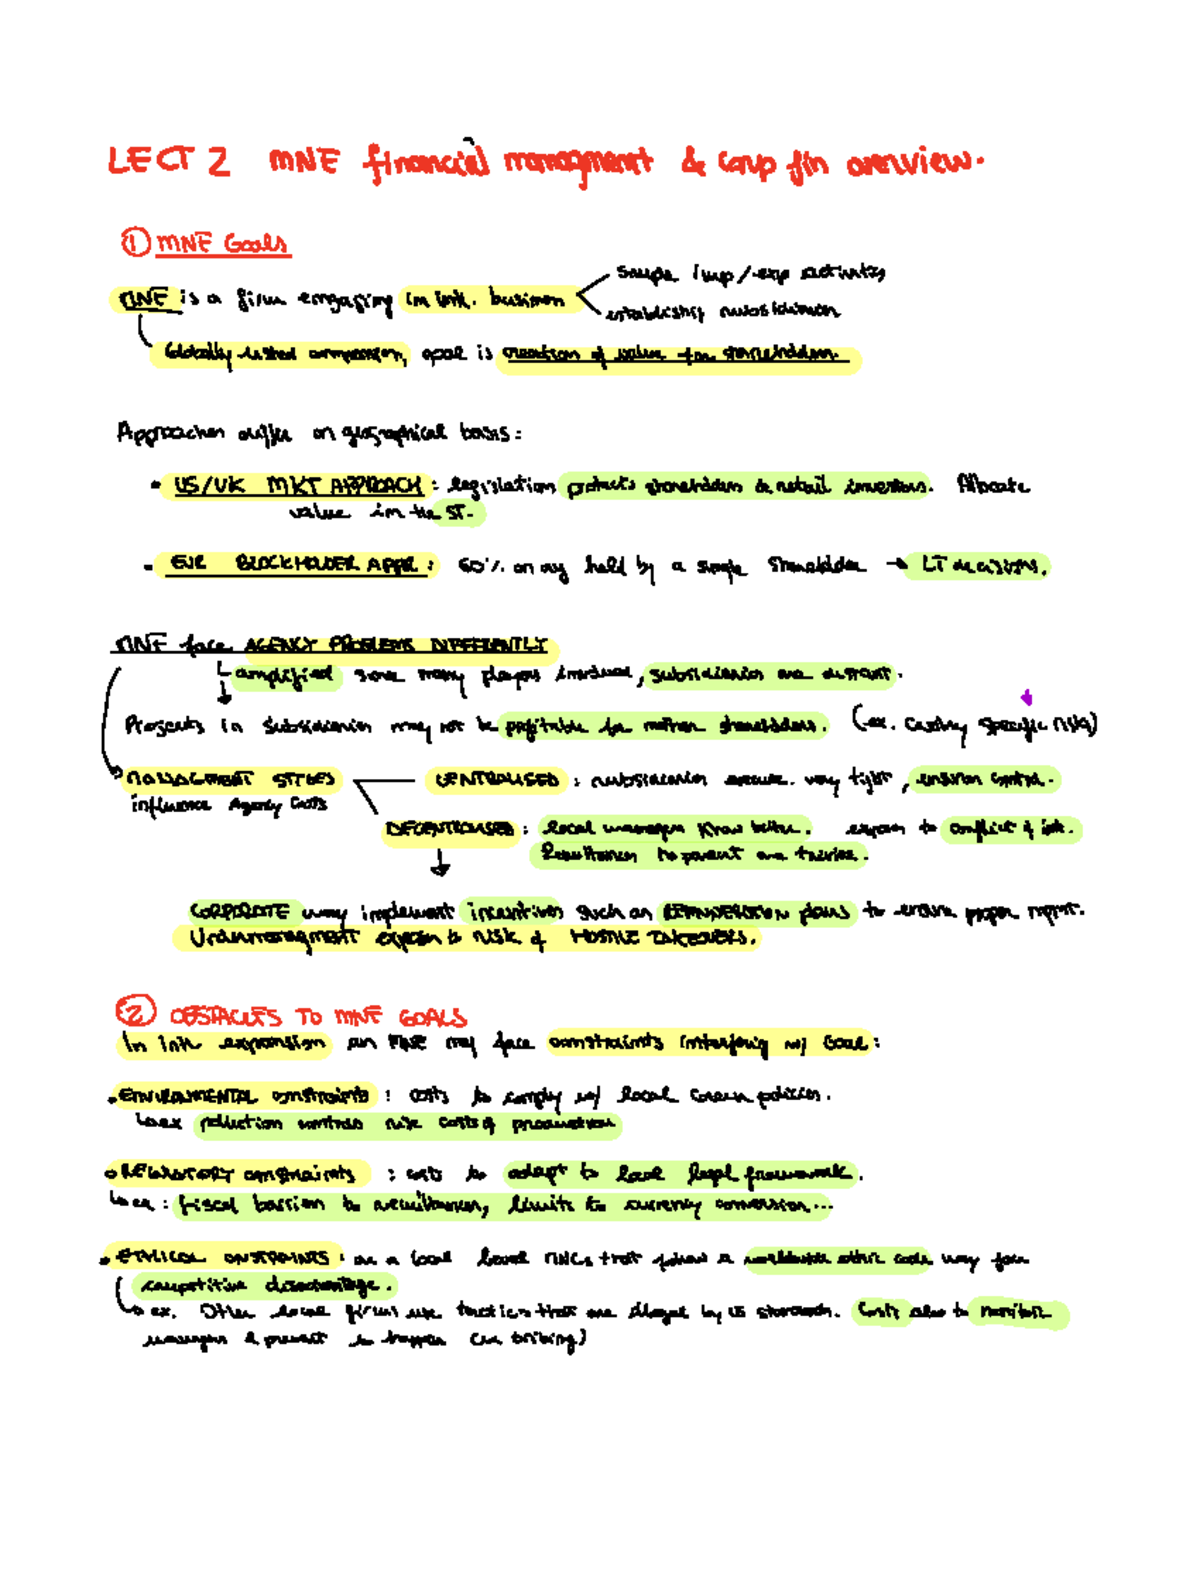 LECT 2 MNE financial managment & corp fin overview.
① MNE Goals
simple imp/exp activities
MNE is a firm engaging in int. business
establishing subsidiaries
Globally listed companies, goal is creation of value for shareholders.
Approaches differ on geographical basis:
• US/UK MKT APPROACH: legislation protects shareholders & retail investors. Allocate
value in the ST.
• EUR BLOCKHOLDER APPR: 60% on avg held by a single shareholder → LT decisions.
MNE face AGENCY PROBLEMS DIFFERENTLY
amplified since many players involved, subsidiaries are distant.
Projects in subsidiaries may not be profitable for mother shareholders. (ex. country specific risk)
MANAGMENT STYLES CENTRALISED: subsidiaries very tight, ensures control.
influence Agency Costs
DECENTRALISED: local managers know better. expose to conflict of int.
Remittances to parent are
CORPORATE may implement incentives such as REMUNERATION plans to ensure proper mgmt.
Undermanagment exposes to risk of HOSTILE TAKEOVERS.
② OBSTACLES TO MNE GOALS
In int. expansion an MNE may face constraints interfering w/ Goal:
• ENVIRONMENTAL constraints: costs to comply w/ local green policies.
ex pollution controls rise costs of production
• REGULATORY constraints: costs to adapt to local legal framework.
ex: fiscal barriers to remittances, limits to currency conversion...
• ETHICAL CONSTRAINTS: on a local level MNCs that follow a worldwide ethic code may face
competitive disadvantage.
ex. Other local firms use tactics that are illegal by US standards. Costs also to monitor
managers & prevent to happen (ex bribing)